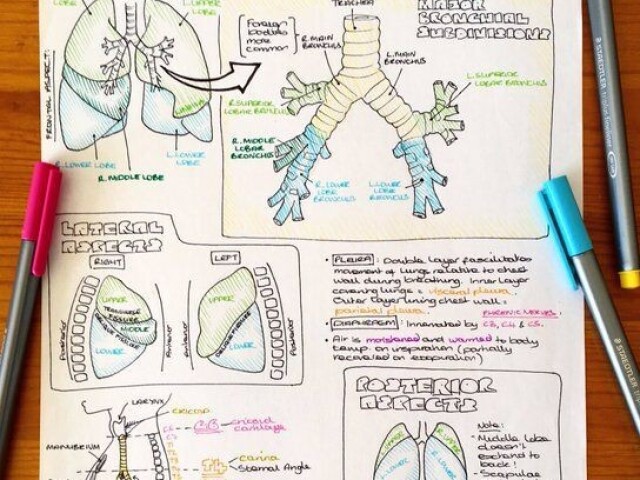 LOBE
L.UPPER
LOBE
LINGULA
FRONTAL ASPECT:
R.LOWER LOBE
R.MIDDLE LOBE
L.LOWER
LOBE
MAJOR
BRONCHIAL
SUBDIVISIONS
TRACHEA
Foreign
bodies
more
common
R.MAIN
BRONCHUS
L.MAIN
BRONCHUS
R.SUPERIOR
LOBAR BRONCHUS
L.SUPERIOR
LOBAR BRONCHUS
R.MIDDLE
LOBAR
BRONCHUS
R.LOWER
LOBAR
BRONCHUS
L.LOWER
LOBAR
BRONCHUS
LATERAL
ASPECTS
RIGHT
LEFT
UPPER
TRANSVERSE
FISSURE
MIDDLE
OBLIQUE FISSURE
LOWER
Posterior
Anterior
UPPER
OBLIQUE FISSURE
LOWER
Anterior
Posterior
• PLEURA: Double layer fascilitates
movement of lungs relative to chest
wall during breathing. Inner layer
covering lungs = visceral pleura.
Outer layer lining chest wall =
parietal pleura.
PHRENIC NERVES!
• DIAPHRAGM: Innervated by C3, C4 & C5.
• Air is moistened and warmed to body
temp. on inspiration (partially
recovered on expiration)
LARYNX
CRICOID
C6
cricoid
cartilage
MANUBRIUM
T4
carina
Sternal Angle
POSTERIOR
ASPECTS
L.UPPER
R.UPPER
L.LOWER
R.LOWER
Note:
- Middle lobe
doesn't
extend to
back!
- Scapulae
STAEDTLER
STAEDTLER